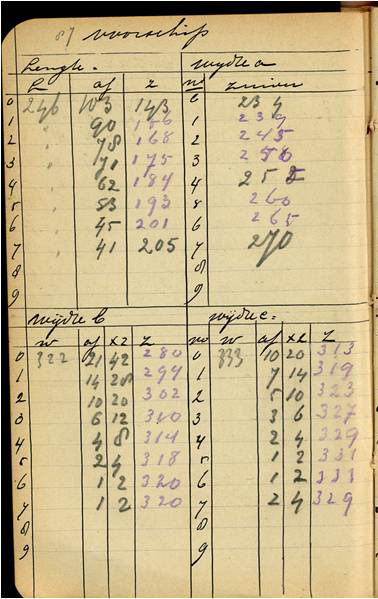 87 voorschip
Lengte. wijdte a
L af z no zuiver
0 246 103 143 0 234
1 " 90 156 1 239
2 " 78 168 2 245
3 " 71 175 3 250
4 " 62 184 4 255
5 " 53 193 5 260
6 " 45 201 6 265
7 " 41 205 7 270
8 8
9 9
wijdte b wijdte c.
w af x2 Z no w af x2 Z
0 322 21 42 280 0 333 10 20 313
1 14 28 294 1 7 14 319
2 10 20 302 2 5 10 323
3 6 12 310 3 3 6 327
4 4 8 314 4 2 4 329
5 2 4 318 5 1 2 331
6 1 2 320 6 1 2 331
7 1 2 320 7 2 4 329
8 8
9 9